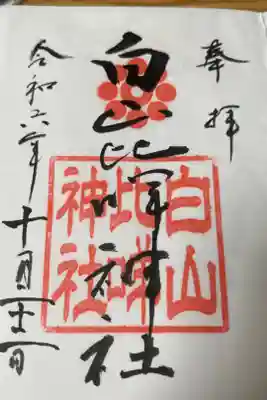 奉拝
白山比咩神社
白山
比咩
神社
令和六年
十月十三日